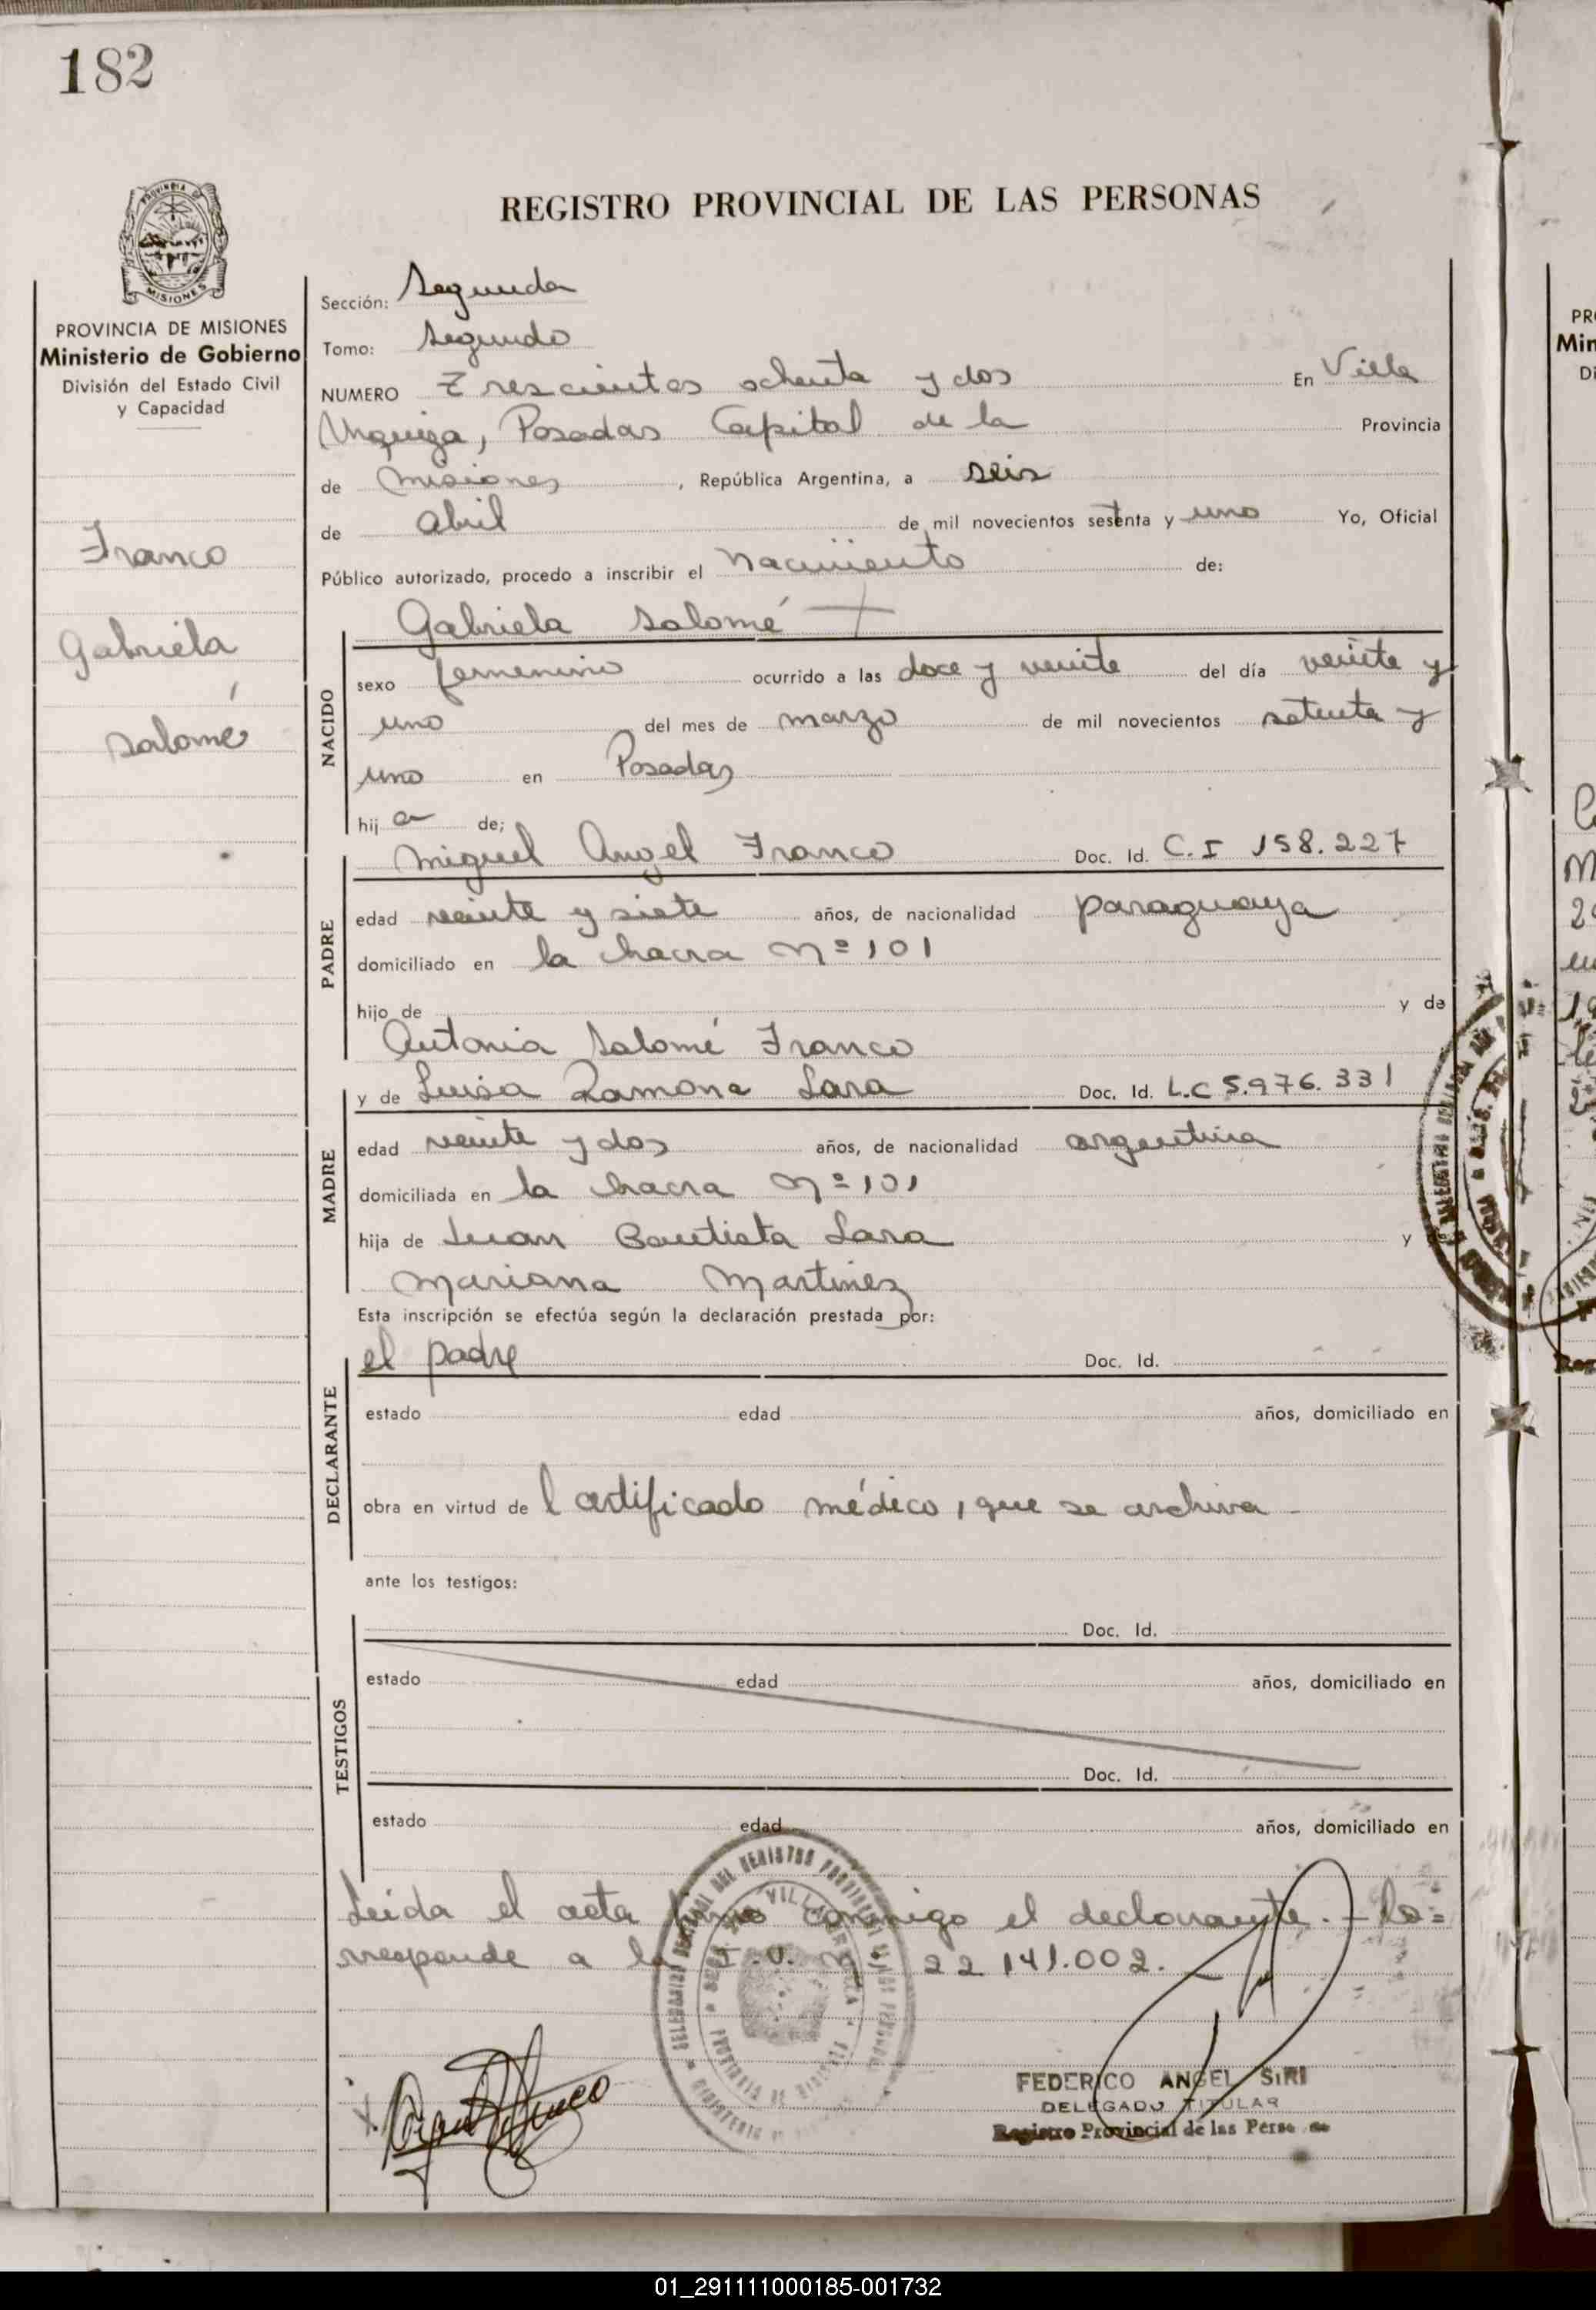 182
PROVINCIA DE
MISIONES
REGISTRO PROVINCIAL DE LAS PERSONAS
PROVINCIA DE MISIONES
Ministerio de Gobierno
División del Estado Civil
y Capacidad
Franco
Gabriela
Salomé
Sección: Segunda
Tomo: Segundo
NUMERO Trescientos ochenta y dos En Villa
Urquiza, Posadas Capital de la Provincia
de Misiones, República Argentina, a seis
de abril de mil novecientos setenta y uno Yo, Oficial
Público autorizado, procedo a inscribir el nacimiento de:
Gabriela Salomé
NACIDO
sexo femenino ocurrido a las doce y veinte del día veinte y
uno del mes de marzo de mil novecientos setenta y
uno en Posadas
hija de;
Miguel Angel Franco Doc. Id. C.I 158.227
PADRE
edad veinte y siete años, de nacionalidad paraguaya
domiciliado en la chacra Nº 101
hijo de y de
Antonia Salomé Franco
y de Luisa Ramona Lara Doc. Id. L.C 5.976.331
MADRE
edad veinte y dos años, de nacionalidad argentina
domiciliada en la chacra Nº 101
hija de Juan Bautista Lara y
Mariana Martinez
Esta inscripción se efectúa según la declaración prestada por:
el padre Doc. Id.
DECLARANTE
estado edad años, domiciliado en
obra en virtud del certificado médico, que se archiva
ante los testigos:
Doc. Id.
TESTIGOS
estado edad años, domiciliado en
Doc. Id.
estado edad años, domiciliado en
Leida el acta firma conmigo el declarante. - Co=
rresponde a la I.U. Nº 22 141.002. -
FEDERICO ANGEL SIRI
DELEGADO TITULAR
Registro Provincial de las Personas
01_291111000185-001732